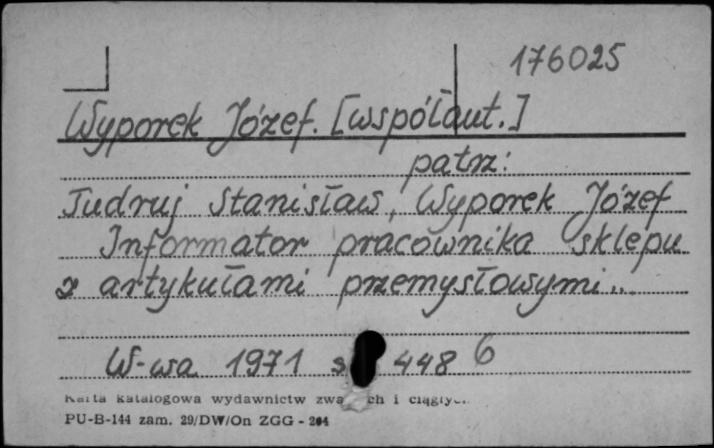 176025
Wyporek Józef. [współaut.]
patrz:
Tudruj Stanisław, Wyporek Józef
Informator pracownika sklepu
z artykułami przemysłowymi..
W-wa 1971 s 448 6
Karta katalogowa wydawnictw zwa ch i ciągły..
PU-B-144 zam. 29/DW/On ZGG - 204